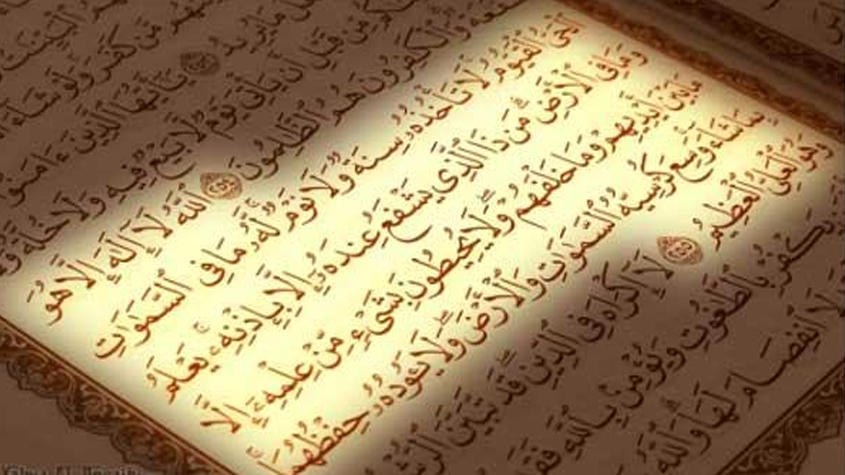 مِّن كَفَرَ وَلَوْ شَآءَ
مَا يُرِيدُ ۝ يَٰٓأَيُّهَا ٱلَّذِينَ ءَامَنُو
مِّن قَبْلِ أَن يَأْتِيَ يَوْمٌ لَّا بَيْعٌ فِيهِ وَلَا خُلَّةٌ
وَٱلْكَٰفِرُونَ هُمُ ٱلظَّٰلِمُونَ ۝٢٥٤ ٱللَّهُ لَآ إِلَٰهَ إِلَّا هُوَ
ٱلْحَىُّ ٱلْقَيُّومُ لَا تَأْخُذُهُۥ سِنَةٌ وَلَا نَوْمٌ لَّهُۥ مَا فِى ٱلسَّمَٰوَٰتِ
وَمَا فِى ٱلْأَرْضِ مَن ذَا ٱلَّذِى يَشْفَعُ عِندَهُۥٓ إِلَّا بِإِذْنِهِۦ يَعْلَمُ
مَا بَيْنَ أَيْدِيهِمْ وَمَا خَلْفَهُمْ وَلَا يُحِيطُونَ بِشَىْءٍ مِّنْ عِلْمِهِۦٓ إِلَّا
بِمَا شَآءَ وَسِعَ كُرْسِيُّهُ ٱلسَّمَٰوَٰتِ وَٱلْأَرْضَ وَلَا يَـُٔودُهُۥ حِفْظُهُمَا
وَهُوَ ٱلْعَلِىُّ ٱلْعَظِيمُ ۝٢٥٥ لَآ إِكْرَاهَ فِى ٱلدِّينِ قَد تَّبَيَّنَ
يَكْفُرْ بِٱلطَّٰغُوتِ وَيُؤْمِنۢ بِٱللَّهِ فَقَدِ
لَا ٱنفِصَامَ لَهَا وَٱللَّهُ